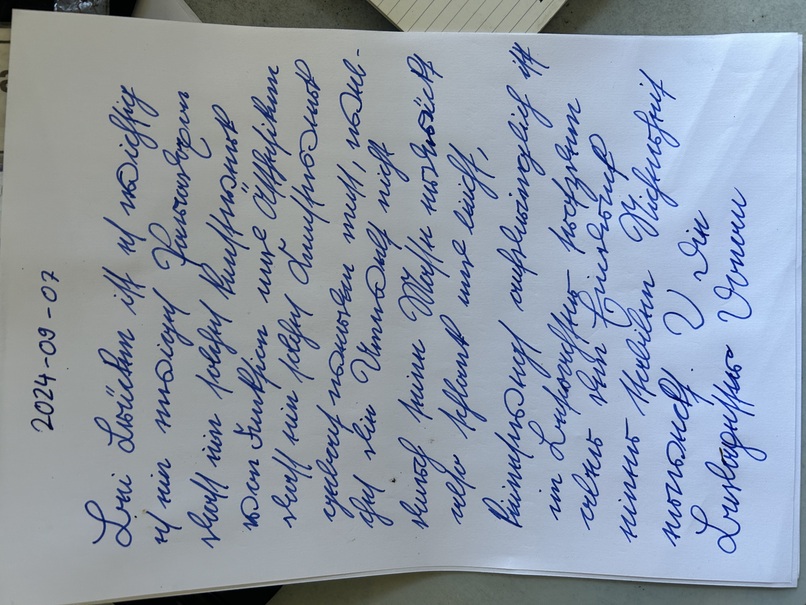 2024-09-07
Bei Brücken ist es wichtig
es ein ewiges Paradoxon
dass ein solches Kunstwerk
von Funktion und Ästhetiken
dass ein solches Kunstwerk
gebaut werden muss, wel-
ches die Umwelt nicht
durch seine Masse erdrückt
also schlank und leicht,
keineswegs aufdringlich ist
im Betrachter trotzdem
aber den Eindruck
einer stabilen Sicherheit
erweckt. V die
Donau